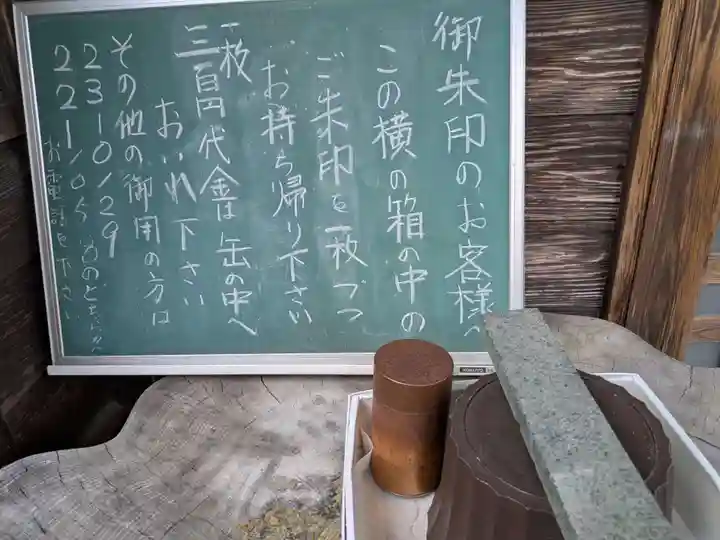 御朱印のお客様へ
この横の箱の中の
ご朱印を一枚づつ
お持ち帰り下さい
一枚
三百円代金は缶の中へ
おいれ下さい
その他の御用の方は
23-0129
22-1105 のどちらかへ
お電話を下さい